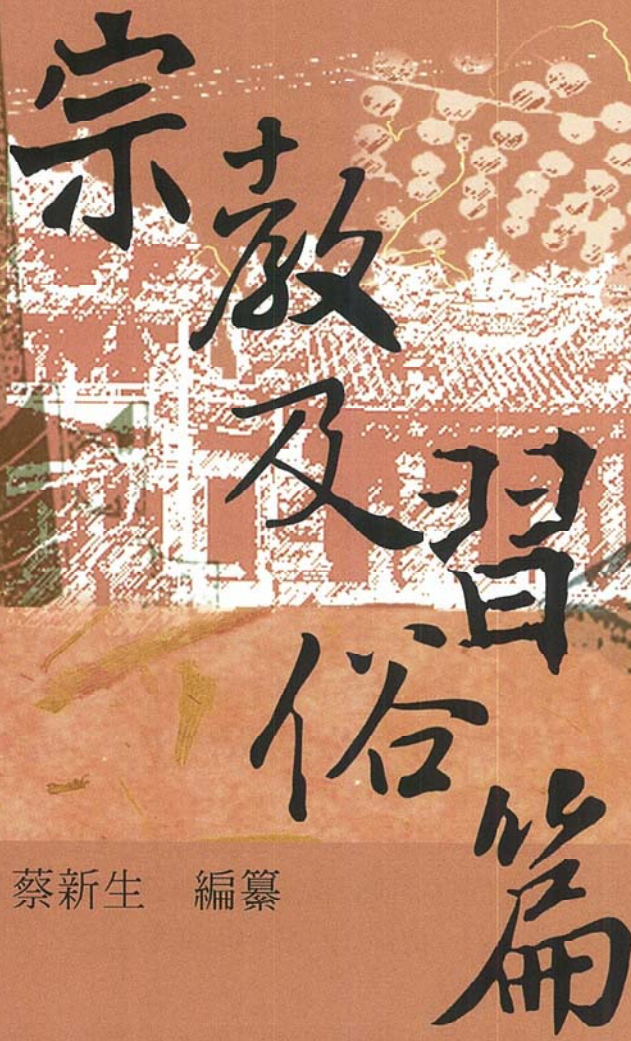 宗教及習俗篇
蔡新生 編纂